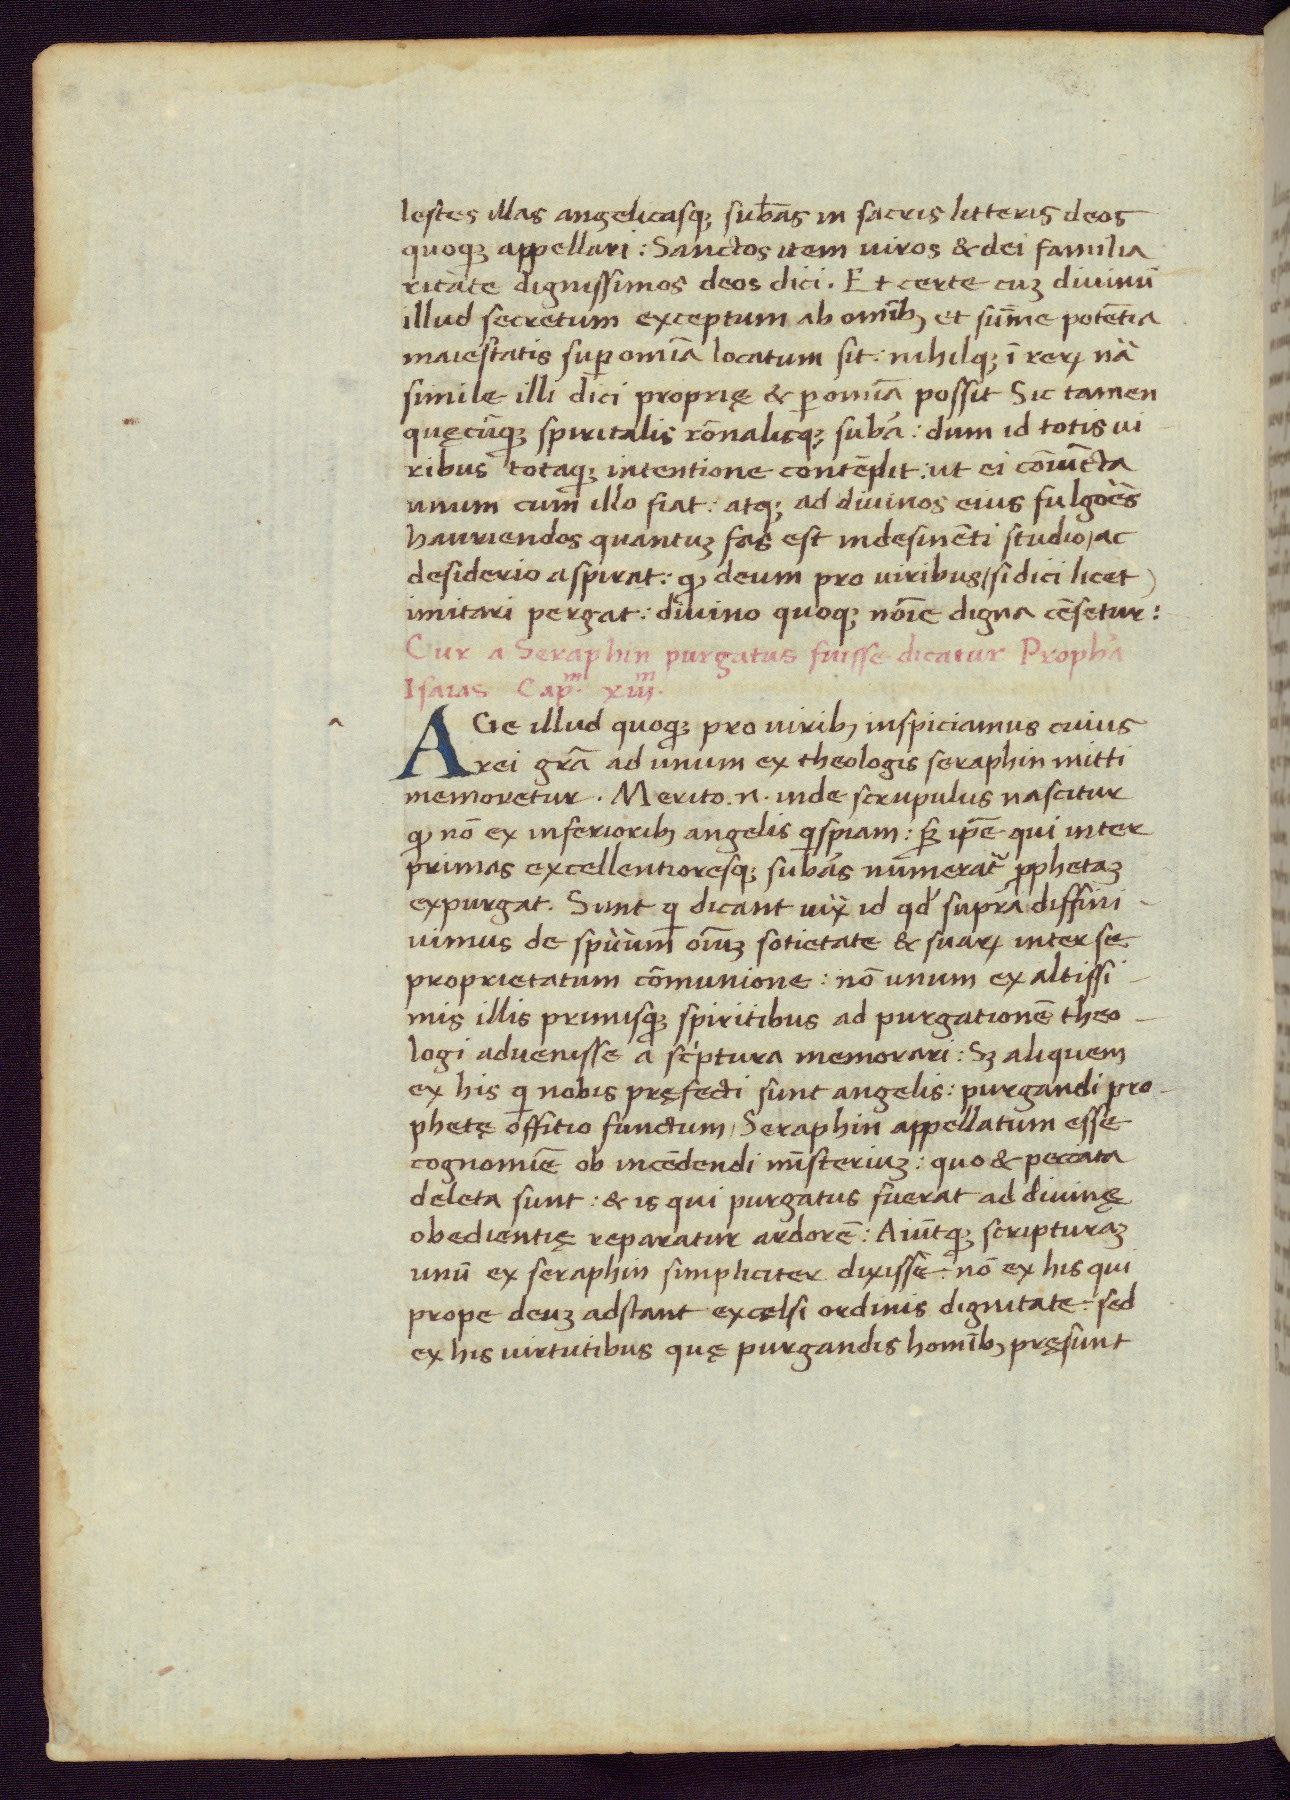 lestes illas angelicasqꝫ sub̄as in sacris litteris deos
quoqꝫ appellari : Sanctos item uiros & dei familia
ritate dignissimos deos dici . Et certe cuꝫ diuinū
illud secretum exceptum ab om̄ibꝫ et sum̄e poten̄tia
maiestatis suꝑ om̄ia locatum sit : nihilqꝫ ī reꝝ nā
simile illi dici proprię & ꝑ om̄ia possit Sic tamen
quęcūqꝫ spiritalis rōnalisqꝫ sub̄a : dum id totis ui
ribus totaqꝫ intentione contēdit : ut ei coniūcta
unum cum illo fiat : atqꝫ ad diuinos eius fulgoēs
hauriendos quantuꝫ fas est indesinēti studio / ac
desiderio aspirat : ꝙ deum pro uiribus / si dici licet )
imitari pergat : diuino quoqꝫ noīe digna cēsetur :
Cur a Seraphin purgatus fuisse dicatur Propha
Isaias Capᵐ. xiiiᵐ.
AGe illud quoqꝫ pro uiribꝫ inspiciamus cuius
rei grā ad unum ex theologis seraphin mitti
memoretur . Merito .n. inde scrupulus nascitur
ꝙ nō ex inferioribꝫ angelis qͥspiam : sꝫ ip̄e qui inter
primas excellentioresqꝫ sub̄as numerat᷑ ꝓphetaꝫ
expurgat . Sunt qͥ dicant iux̄ id qd̓ supra diffini
uimus de sp̄uum oīuꝫ sotietate & suaꝝ inter se
proprietatum cōmunione : nō unum ex altissi
mis illis primisqꝫ spiritibus ad purgationē theo
logi aduenisse a scͥptura memorari : Sꝫ aliquem
ex his qͥ nobis pręfecti sunt angelis : purgandi pro
phetę offitio functum / Seraphin appellatum esse
cognomīe ob incēdendi mīsteriuꝫ : quo & peccata
deleta sunt : & is qui purgatus fuerat ad diuinę
obedientię reparatur ardorē : Aiūtqꝫ scripturaꝫ
unū ex seraphin simpliciter dixisse : nō ex his qui
prope deuꝫ adstant excelsi ordinis dignitate : sed
ex his uirtutibus quę purgandis homībꝫ pręsunt